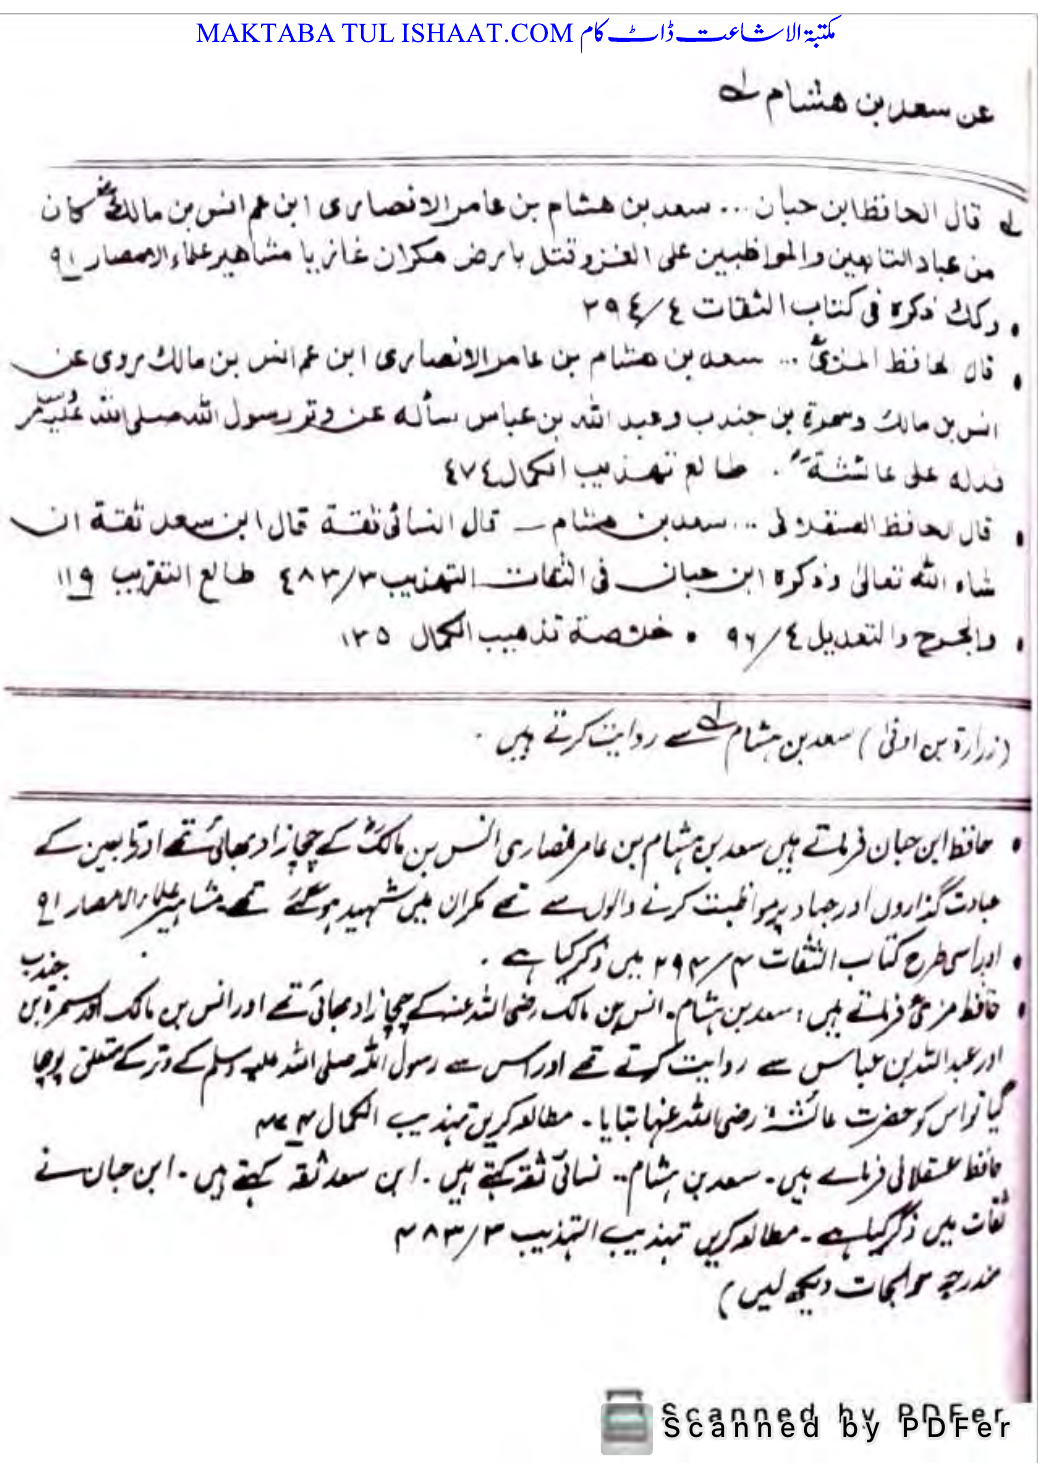 MAKTABA TUL ISHAAT.COM مکتبۃ الاشاعت ڈاٹ کام
عن سعد بن هشام لـه
لـه قال الحافظ ابن حبان ... سعد بن هشام بن عامر الانصاری ابن عم انس بن مالک كان
من عباد التابعین والمواظبین علی الغزو قتل بارض مکران غازیا مشاهیر علماء الامصار ٩١
• ذکره فی کتاب الثقات ٤/٢٩٤
• قال الحافظ المزیؒ ... سعد بن هشام بن عامر الانصاری ابن عم انس بن مالك روی عن
انس بن مالك وسمرة بن جندب وعبد الله بن عباس سأله عن وتر رسول الله صلی الله علیه وسلم
فدله علی عائشة . طالع تهذیب الکمال ٤٧٤
• قال الحافظ العسقلانی ... سعد بن هشام ـ قال النسائی ثقة قال ابن سعد ثقة ان
شاء الله تعالیٰ وذکره ابن حبان فی الثقات التهذیب ٣/٤٨٣ طالع التقریب ١١٩
• والجرح والتعدیل ٤/٩٦ • خلاصة تذهیب الکمال ١٣٥
(زرارۃ بن اوفیٰ) سعد بن ہشام لـه سے روایت کرتے ہیں ۔
• حافظ ابن حبان فرماتے ہیں سعد بن ہشام بن عامر انصاری انس بن مالکؓ کے چچازاد بھائی تھے اور تابعین کے
عبادت گذاروں اور جہاد پر مواظبت کرنے والوں سے تھے مکران میں شہید ہو گئے تھے۔ مشاہیر علماء الامصار ٩١
• اور اسی طرح کتاب الثقات ۴/۲۹۴ میں ذکر کیا ہے ۔
• حافظ مزیؒ فرماتے ہیں : سعد بن ہشام۔ انس بن مالک رضی اللہ عنہ کے چچازاد بھائی تھے اور انس بن مالک اور سمرۃ بن جندب
اور عبد اللہ بن عباس سے روایت کرتے تھے اور اس سے رسول اللہ صلی اللہ علیہ وسلم کے وتر کے متعلق پوچھا
گیا تو اس کو حضرت عائشہ رضی اللہ عنہا بتایا ۔ مطالعہ کریں تہذیب الکمال ۴۷۴
حافظ عسقلانی فرماتے ہیں ۔ سعد بن ہشام ۔۔ نسائی ثقہ کہتے ہیں ۔ ابن سعد ثقہ کہتے ہیں ۔ ابن حبان نے
ثقات میں ذکر کیا ہے ۔ مطالعہ کریں تہذیب التہذیب ۳/۴۸۳
مندرجہ حوالجات دیکھ لیں )
Scanned by PDFer
Scanned by PDFer